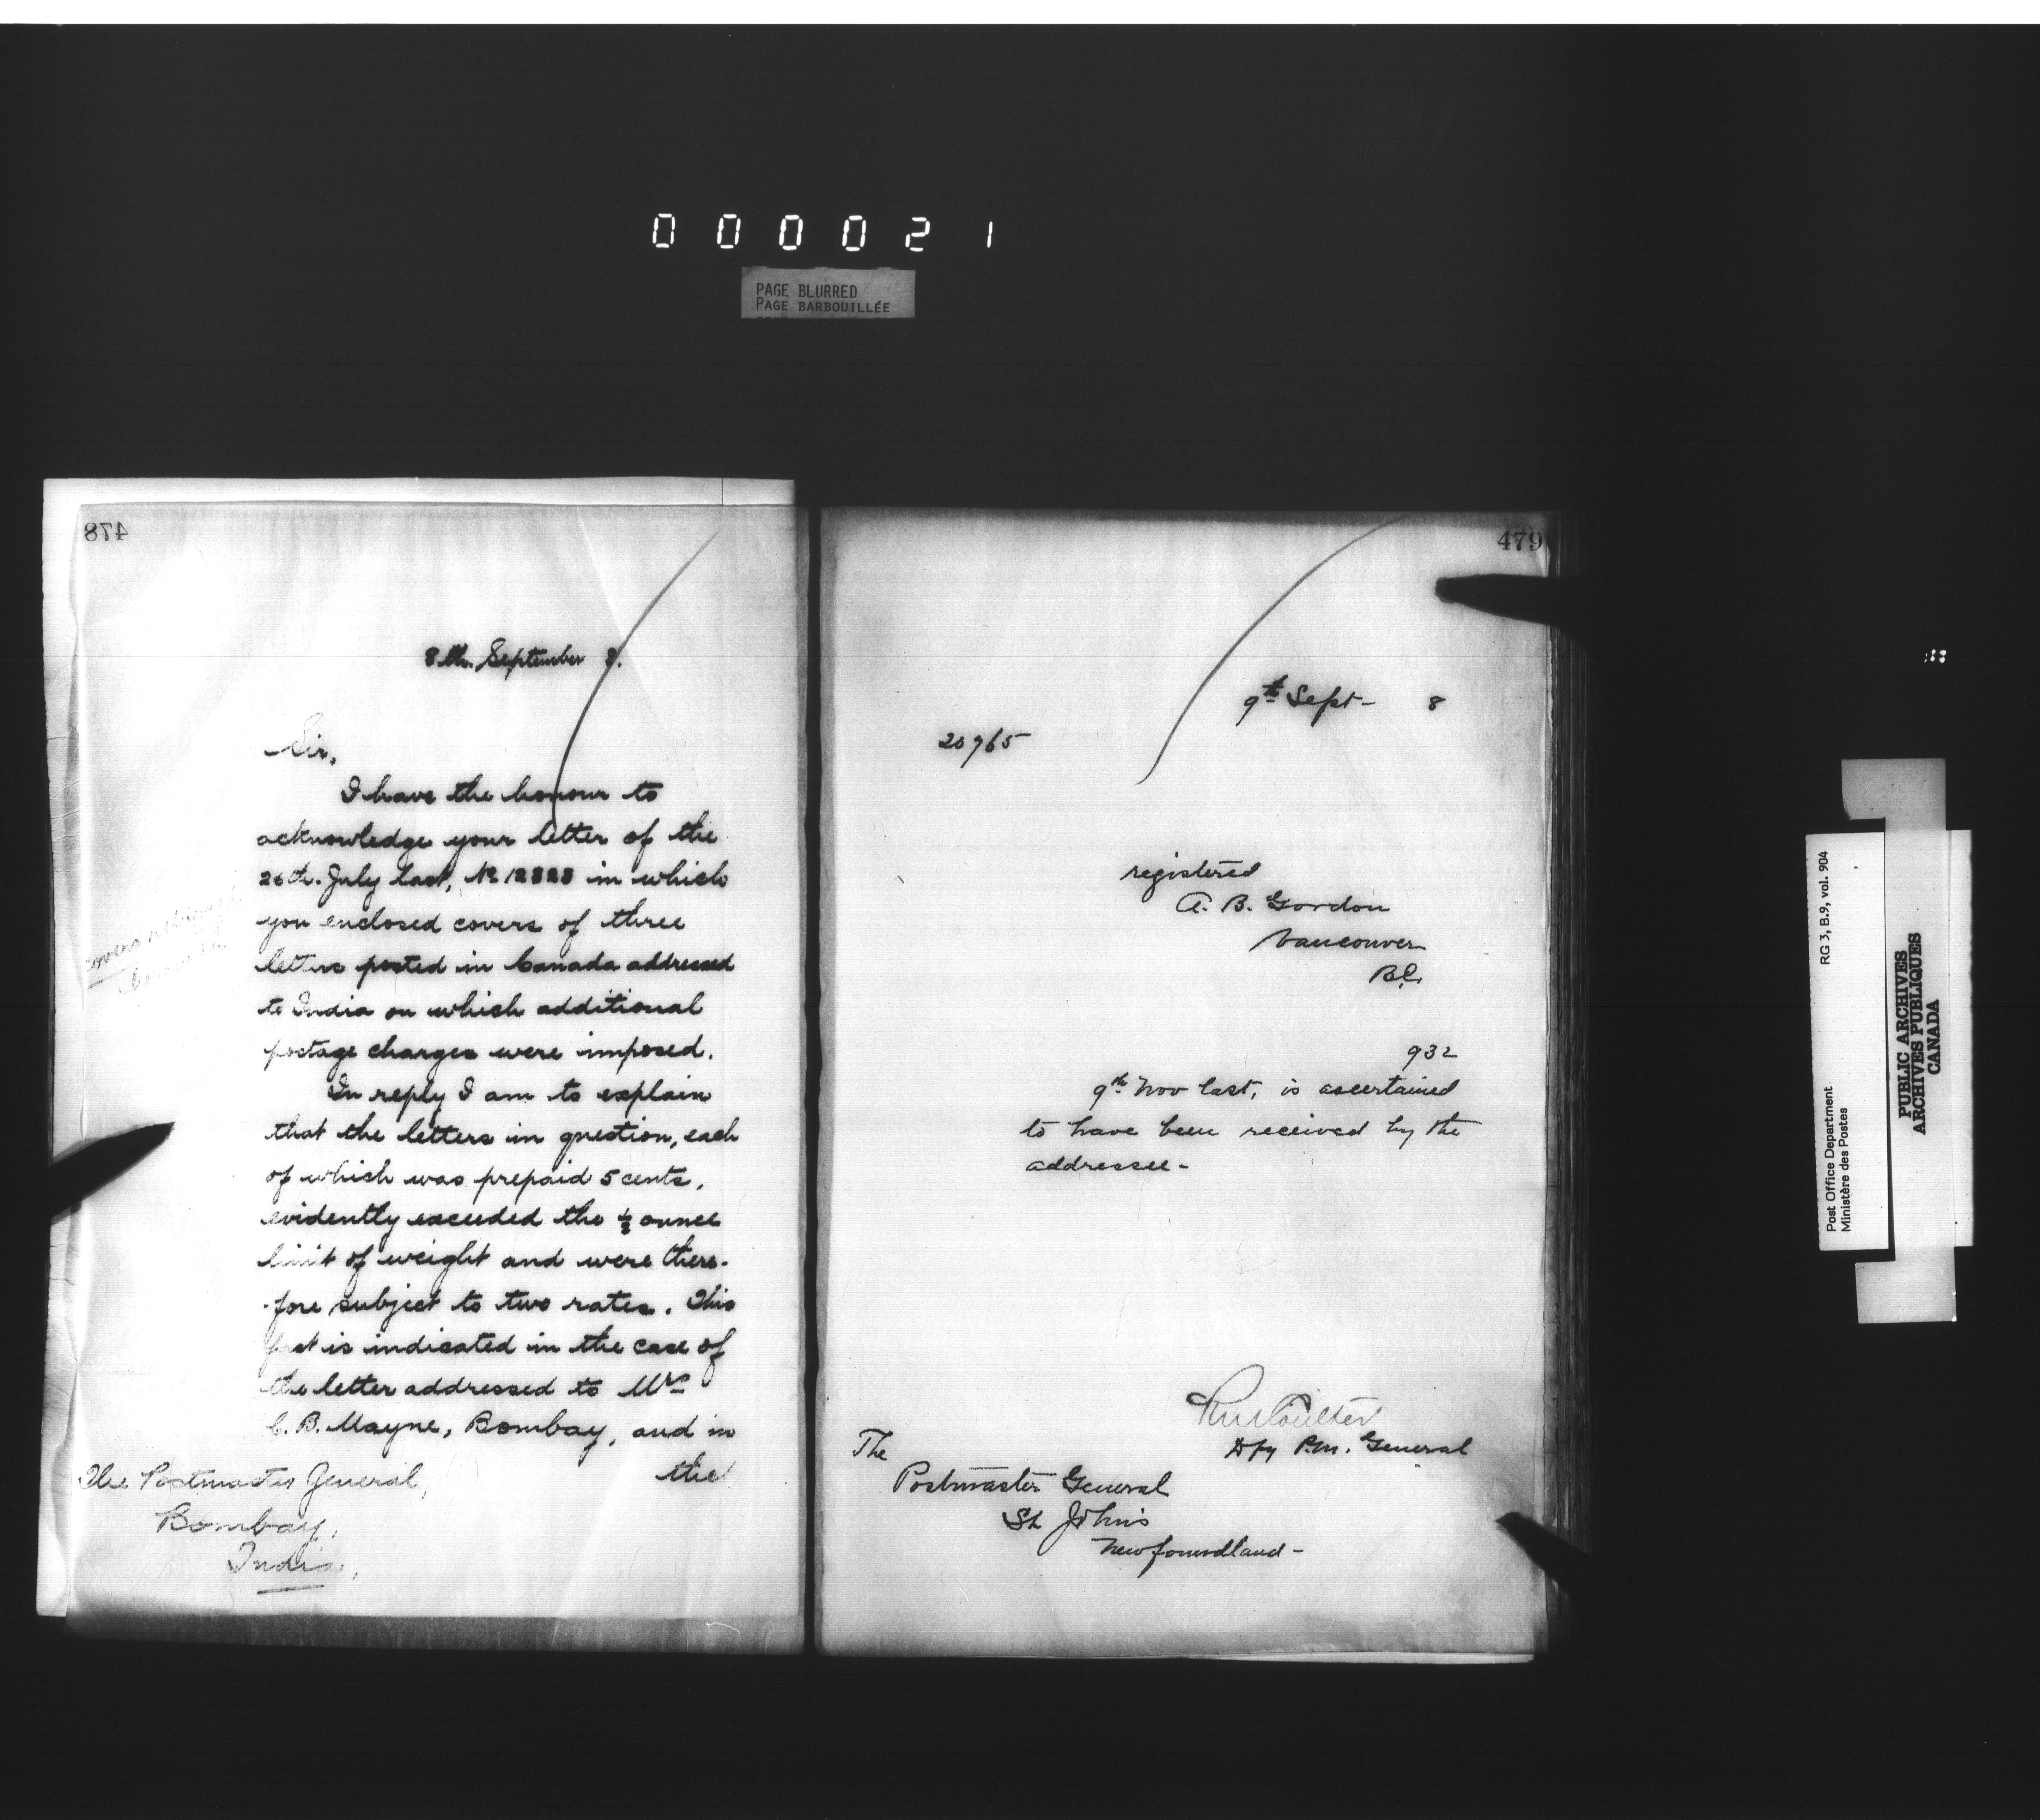 000021
PAGE BLURRED
PAGE BARBOUILLÉE
478
8th. September 8.
Sir,
I have the honour to
acknowledge your letter of the
26th. July last, No 12828 in which
you enclosed covers of three
letters posted in Canada addressed
to India on which additional
postage charges were imposed.
In reply I am to explain
that the letters in question, each
of which was prepaid 5 cents,
evidently exceeded the ½ ounce
limit of weight and were there-
-fore subject to two rates. This
fact is indicated in the case of
the letter addressed to Mrs
C. B. Mayne, Bombay, and in
the
The Postmaster General,
Bombay,
India,
covers
479
9th Sept- 8
20765
registered
A. B. Gordon
Vancouver
B.C.
932
9th Nov last, is ascertained
to have been received by the
addressee-
RM Coulter
Dpy P.M. General
The
Postmaster General
St John's
Newfoundland-
RG 3, B.9, vol. 904
Post Office Department
Ministère des Postes
PUBLIC ARCHIVES
ARCHIVES PUBLIQUES
CANADA